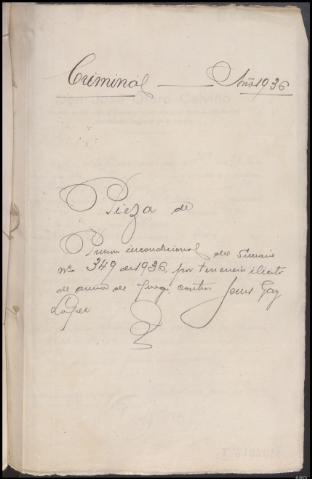 Criminal Año 1936
Pieza de
Prision incondicional del Sumario
nº 349 de 1936, por tenencia ilicita
de arma de fuego contra Jesus Gay
Lopez